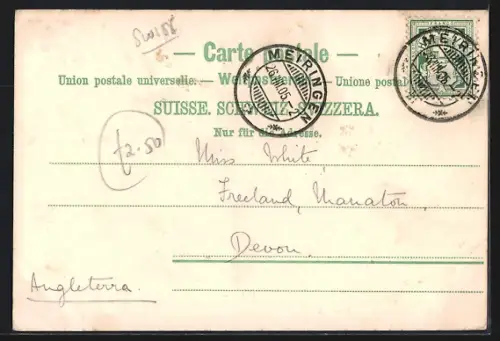 Swiss
Carte postale
Union postale universelle. — Weltpostverein. — Unione postale
SUISSE. SCHWEIZ. SVIZZERA.
Nur für die Adresse.
MEIRINGEN
MEIRINGEN
£2-50
Miss White,
Freeland, Manaton,
Devon.
Angleterra.